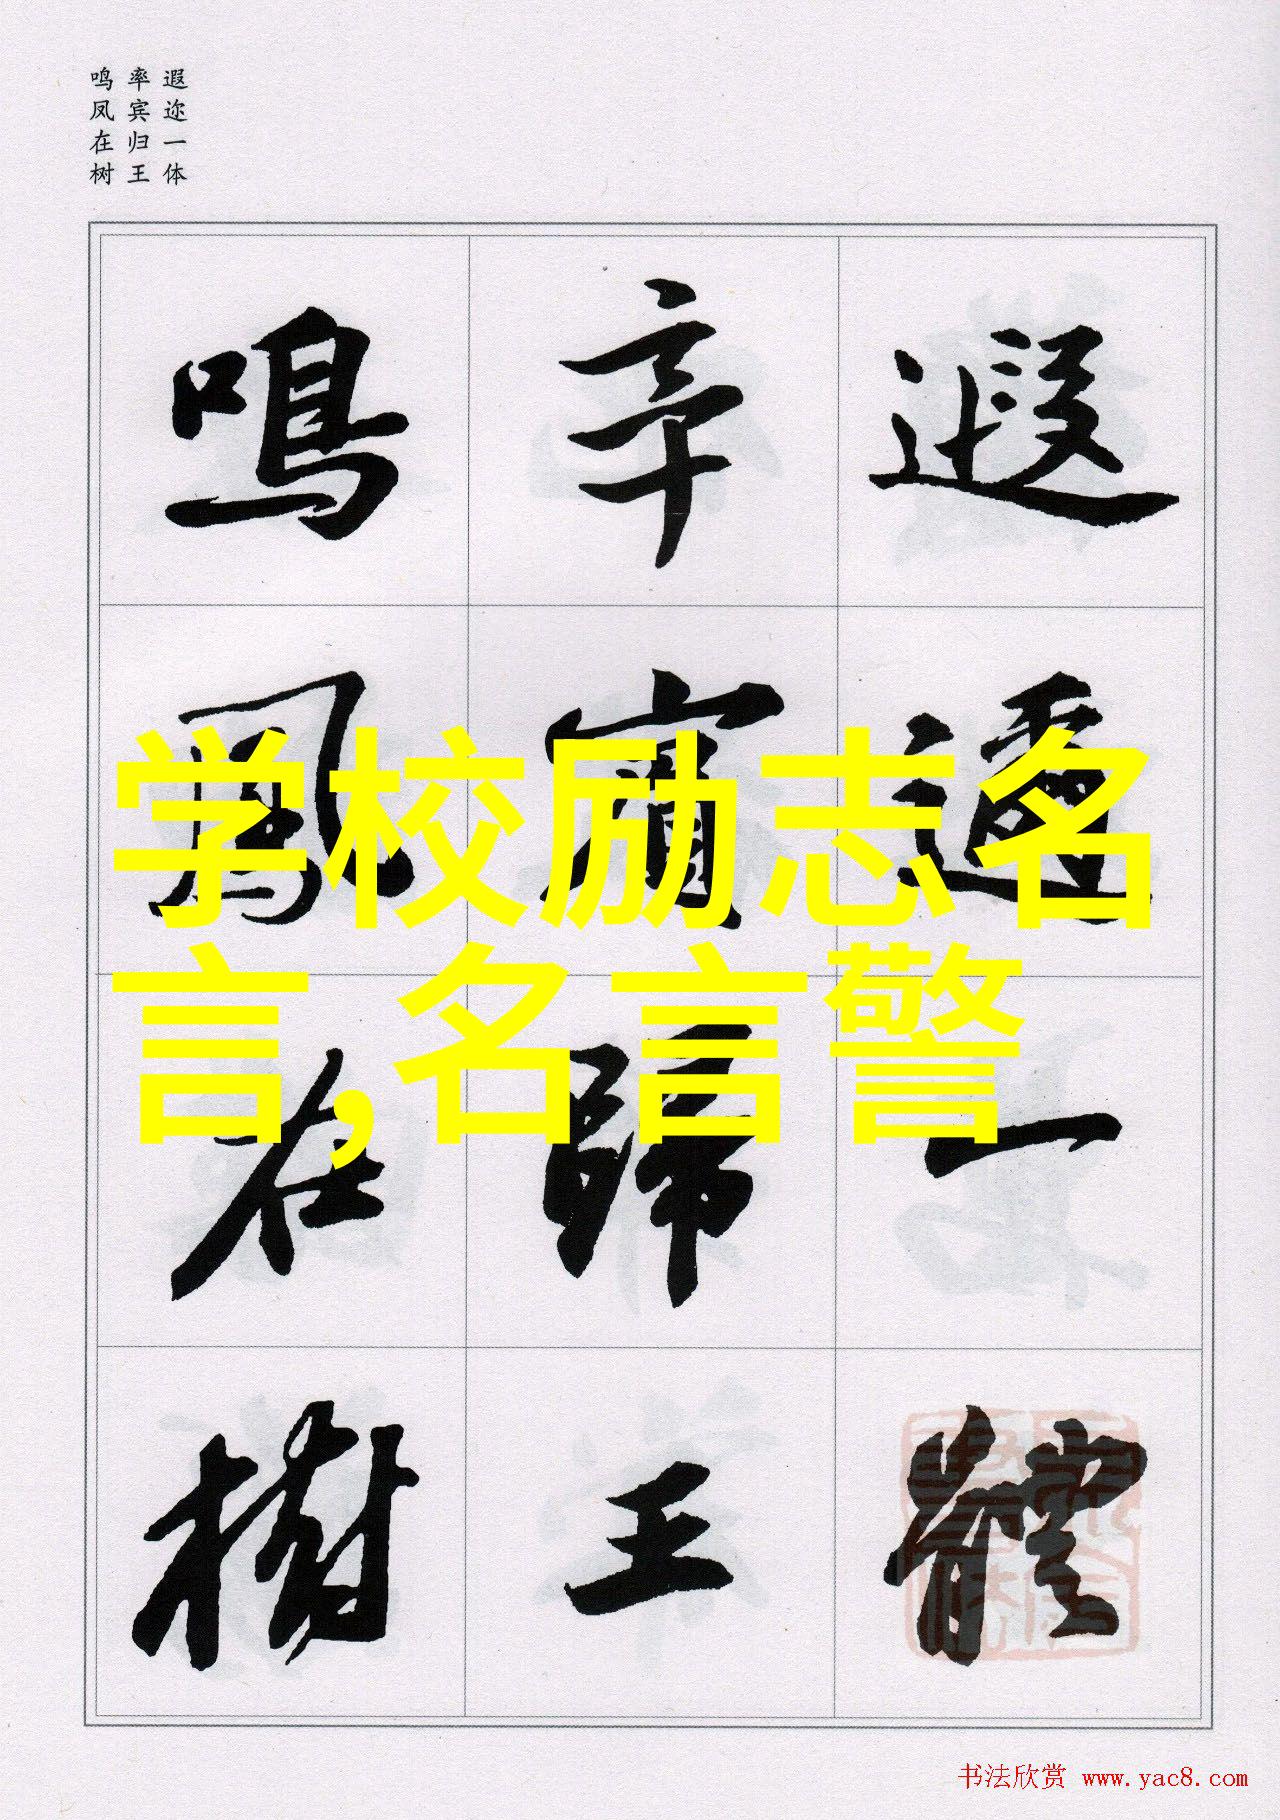 遐迩一体
率宾归王
鸣凤在树
遐邇一體
率賓歸王
鳴鳳在樹
学校励志名
言,名言警
书法欣赏 www.yac8.com